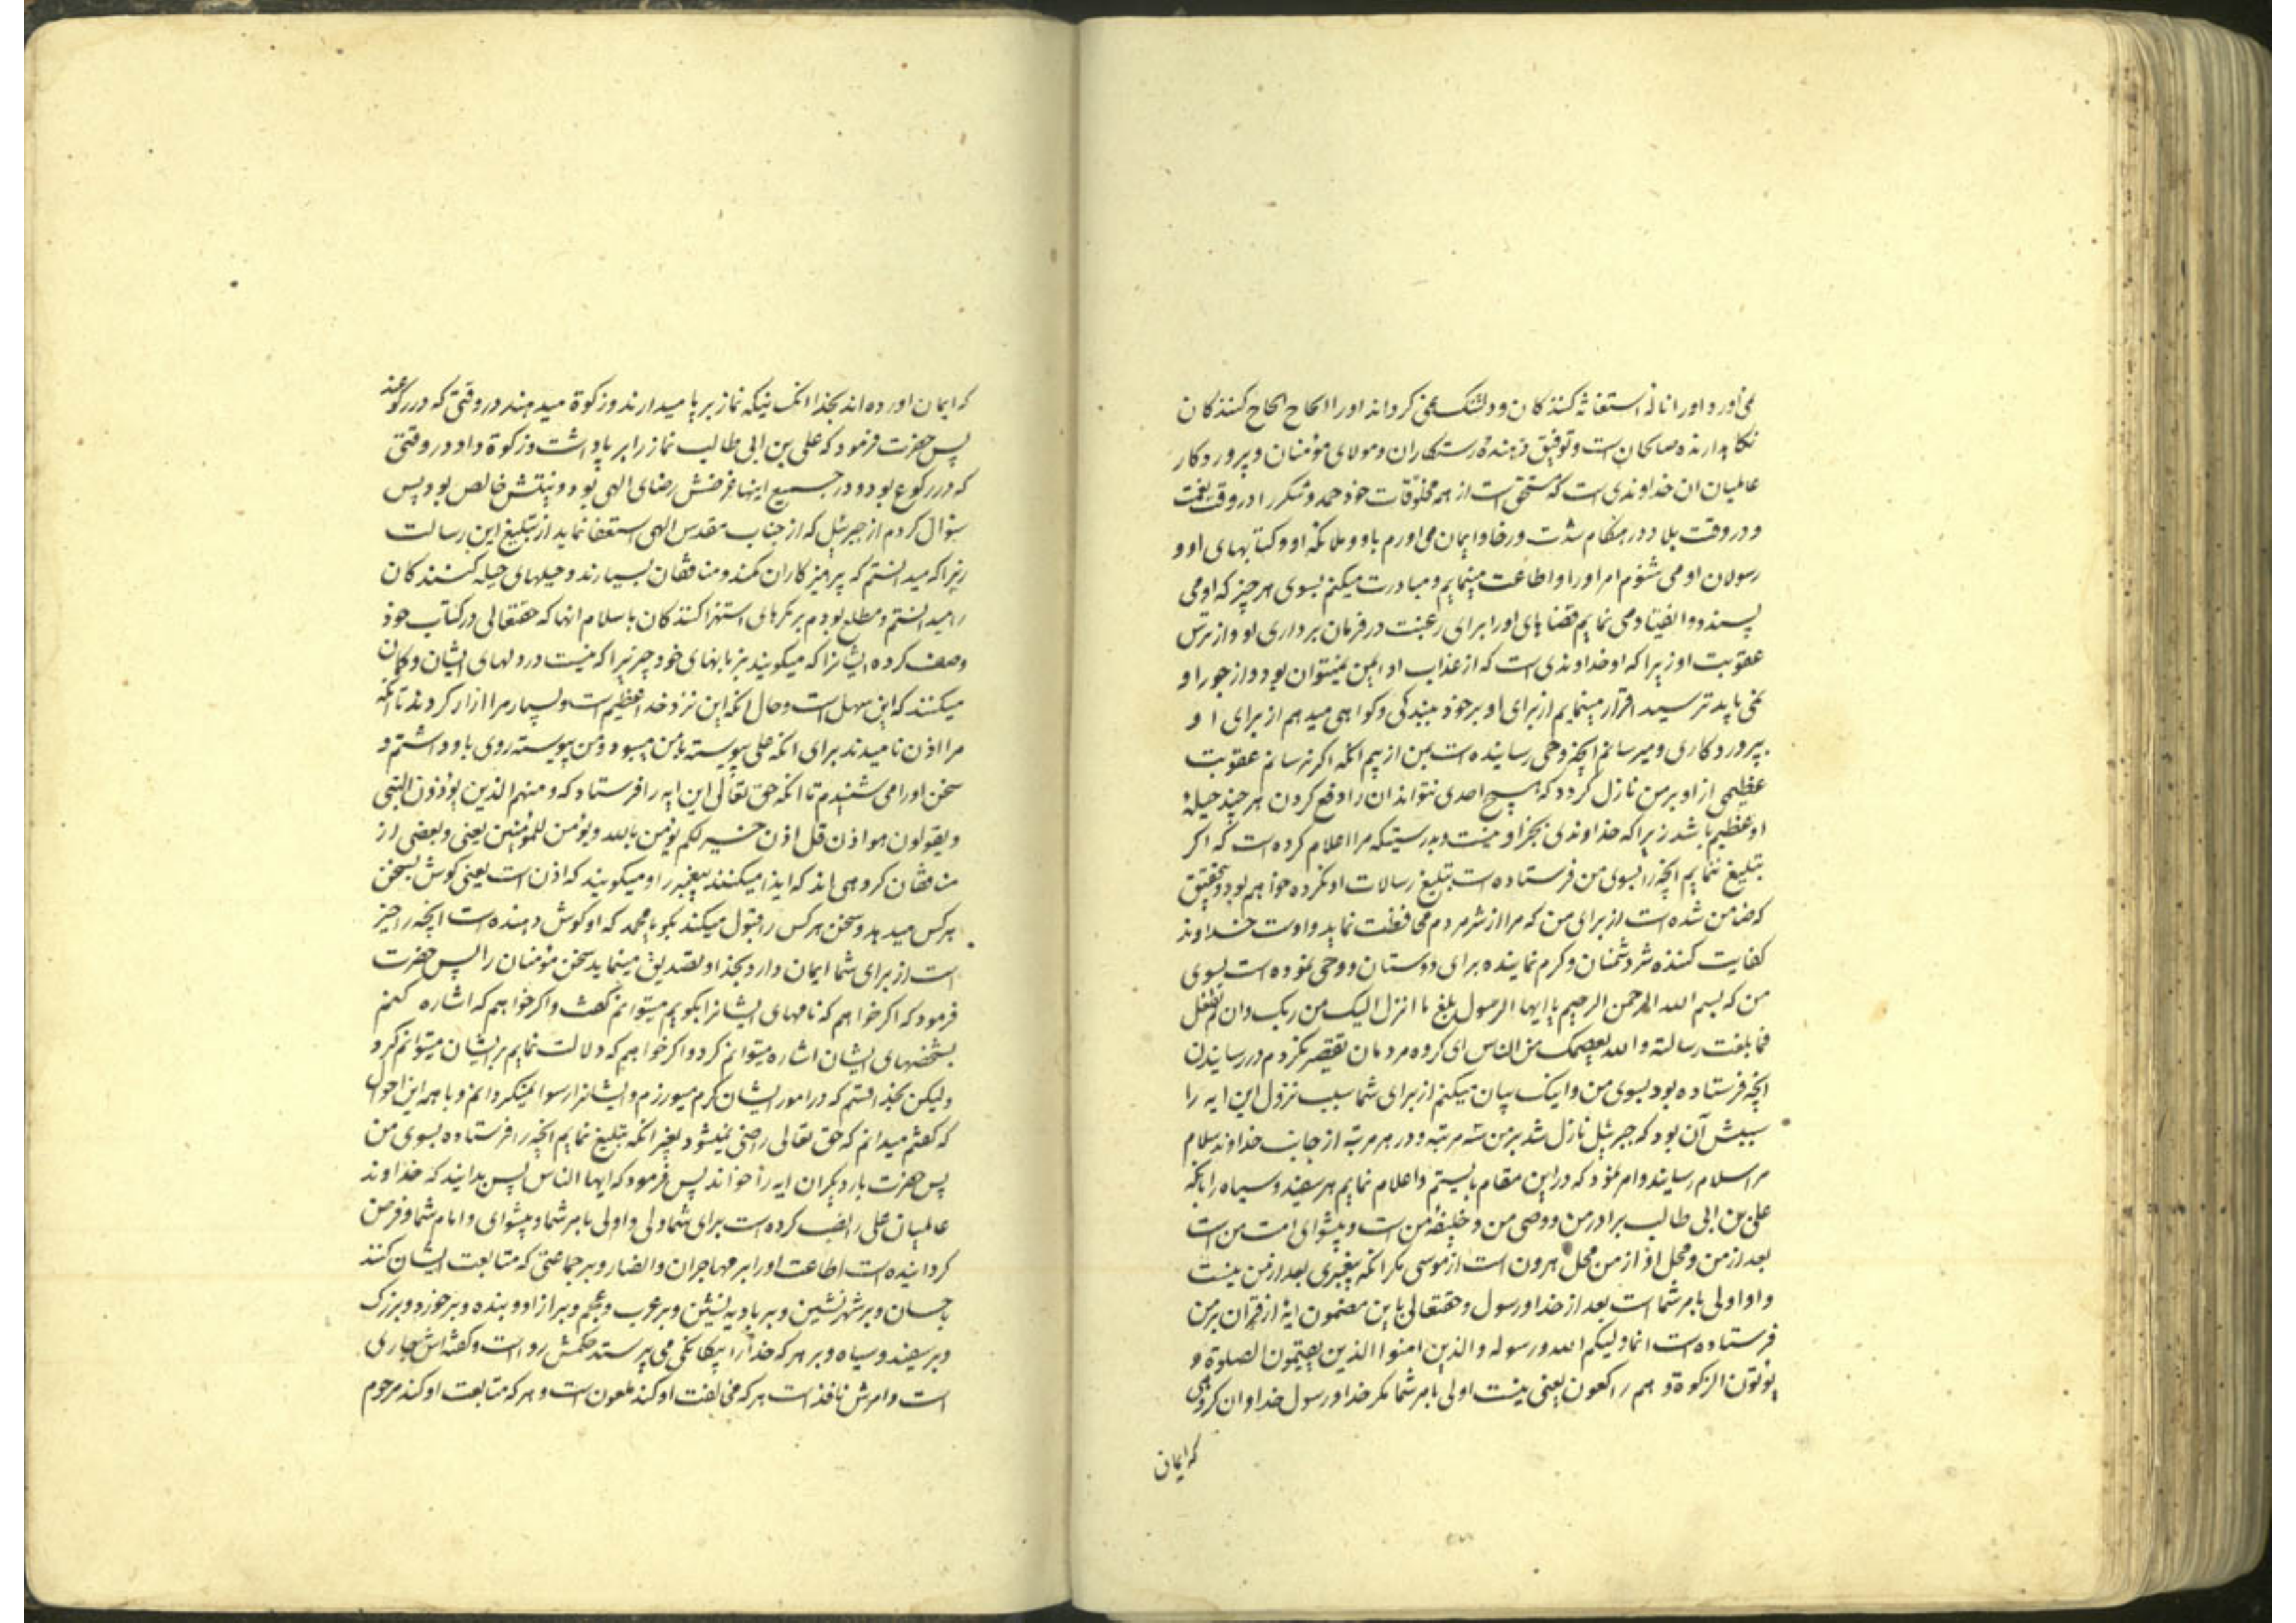 نمی‌آورد او را ناله استغاثه کنندگان و دلتنک نمی کرداند او را الحاح الحاح کنندکان
نکاهدارنده صالحان است و توفیق دهنده رستکاران و مولای مؤمنان و پروردکار
عالمیان ان خداوندی است که مستحق است از همه مخلوقات خود حمد و شکر را در وقت نعمت
و در وقت بلا و در هنکام شدت و رخا و ایمان می اورم باو و ملائکه او و کتابهای او و
رسولان او می شنوم امر او را و اطاعت مینمایم و مبادرت میکنم بسوی هر چیز که او می
پسندد و انقیاد می نمایم قضاهای او را برای رغبت در فرمان برداری او و از ترس
عقوبت او زیرا که او خداوندی است که از عذاب او ایمن نمیتوان بود و از جور او
نمی باید ترسید اقرار مینمایم از برای او بر خود ببندکی و کواهی میدهم از برای او
پروردکاری و میرسانم انچه وحی رسانیده است بمن از بیم انکه اکر نرسانم عقوبت
عظیمی از او بر من نازل کردد که هیچ احدی نتواند ان را دفع کردن هر چند حیلهٔ
او عظیم باشد زیرا که خداوندی بجز او نیست و بدرستیکه مرا اعلام کرده است که اکر
تبلیغ ننمایم انچه را بسوی من فرستاده است تبلیغ رسالات او نکرده خواهم بود و بتحقیق
که ضامن شده است از برای من که مرا از شر مردم محافظت نماید و اوست خداوند
کفایت کننده شر دشمنان و کرم نماینده برای دوستان و وحی نموده است بسوی
من که بسم الله الرحمن الرحیم یا ایها الرسول بلغ ما انزل الیک من ربک وان لم تفعل
فما بلغت رسالته والله یعصمک من الناس ای کروه مردمان تقصیر نکردم در رسانیدن
انچه فرستاده بود بسوی من و اینک بیان میکنم از برای شما سبب نزول این ایه را
سببش آن بود که جبرئیل نازل شد بر من سه مرتبه و در هر مرتبه از جانب خداوند سلام
مرا سلام رسانید و امر نمود که در این مقام بایستم و اعلام نمایم هر سفید و سیاه را بانکه
علی بن ابی طالب برادر من و وصی من و خلیفه من است و پیشوای امت من است
بعد از من و محل او از من محل هرون است از موسی مکر انکه پیغمبری بعد از من نیست
و او اولی بامر شما است بعد از خدا و رسول و حقتعالی باین مضمون ایهٔ از قران بر من
فرستاده است انما ولیکم الله ورسوله والذین امنوا الذین یقیمون الصلوة و
یؤتون الزکوة وهم راکعون یعنی نیست اولی بامر شما مکر خدا و رسول خدا و ان کروهی
که ایمان
که ایمان اورده اند بخدا انکسانیکه نماز بر پا میدارند و زکوة میدهند در وقتی که در رکوعند
پس حضرت فرمود که علی بن ابی طالب نماز را بر پا داشت و زکوة داد در وقتی
که در رکوع بود و در جمیع اینها غرضش رضای الهی بود و نیتش خالص بود پس
سؤال کردم از جبرئیل که از جناب مقدس الهی استعفا نماید از تبلیغ این رسالت
زیرا که میدانستم که پرهیزکاران کمند و منافقان بسیارند و حیلهای حیله کنندکان
را میدانستم و مطلع بودم بر مکرهای استهزا کنندکان باسلام انها که حقتعالی در کتاب خود
وصف کرده ایشانرا که میکویند بزبانهای خود چیزیرا که نیست در دلهای ایشان و کمان
میکنند که این سهل است و حال انکه این نزد خدا عظیم است و بسیار مرا ازار کردند تا انکه
مرا اذن نامیدند برای انکه علی پیوسته با من میبود و من پیوسته روی باو داشتم و
سخن او را می شنیدم تا انکه حق تعالی این ایه را فرستاد که ومنهم الذین یؤذون النبی
ویقولون هو اذن قل اذن خیر لکم یؤمن بالله ویؤمن للمؤمنین یعنی و بعضی از
منافقان کروهی اند که ایذا میکنند پیغمبر را و میکویند که اذن است یعنی کوش بسخن
هر کس میدهد و سخن هر کس را قبول میکند بکو یا محمد که او کوش دهنده است انچه را خیر
است از برای شما ایمان دارد بخدا و تصدیق مینماید سخن مؤمنان را پس حضرت
فرمود که اکر خواهم که نامهای ایشانرا بکویم میتوانم کفت و اکر خواهم که اشاره کنم
بشخصهای ایشان اشاره میتوانم کرد و اکر خواهم که دلالت نمایم بر ایشان میتوانم کرد
ولیکن بخدا قسم که در امور ایشان کرم میورزم و ایشانرا رسوا نمیکردانم و با همه این احوال
که کفتم میدانم که حق تعالی راضی نمیشود بغیر انکه تبلیغ نمایم انچه را فرستاده بسوی من
پس حضرت بار دیکر ان ایه را خواند پس فرمود که ایها الناس پس بدانید که خداوند
عالمیان علی را نصب کرده است برای شما ولی و اولی بامر شما و پیشوای و امام شما و فرض
کردانیده است اطاعت او را بر مهاجران و انصار و بر جماعتی که متابعت ایشان کنند
باحسان و بر شهر نشین و بر بادیه نشین و بر عرب و عجم و بر ازاد و بنده و بر خورد و بزرک
و بر سفید و سیاه و بر هر که خدا را بیکانکی می پرستد حکمش روا است و کفته اش جاری
است و امرش نافذ است هر که مخالفت او کند ملعون است و هر که متابعت او کند مرحوم